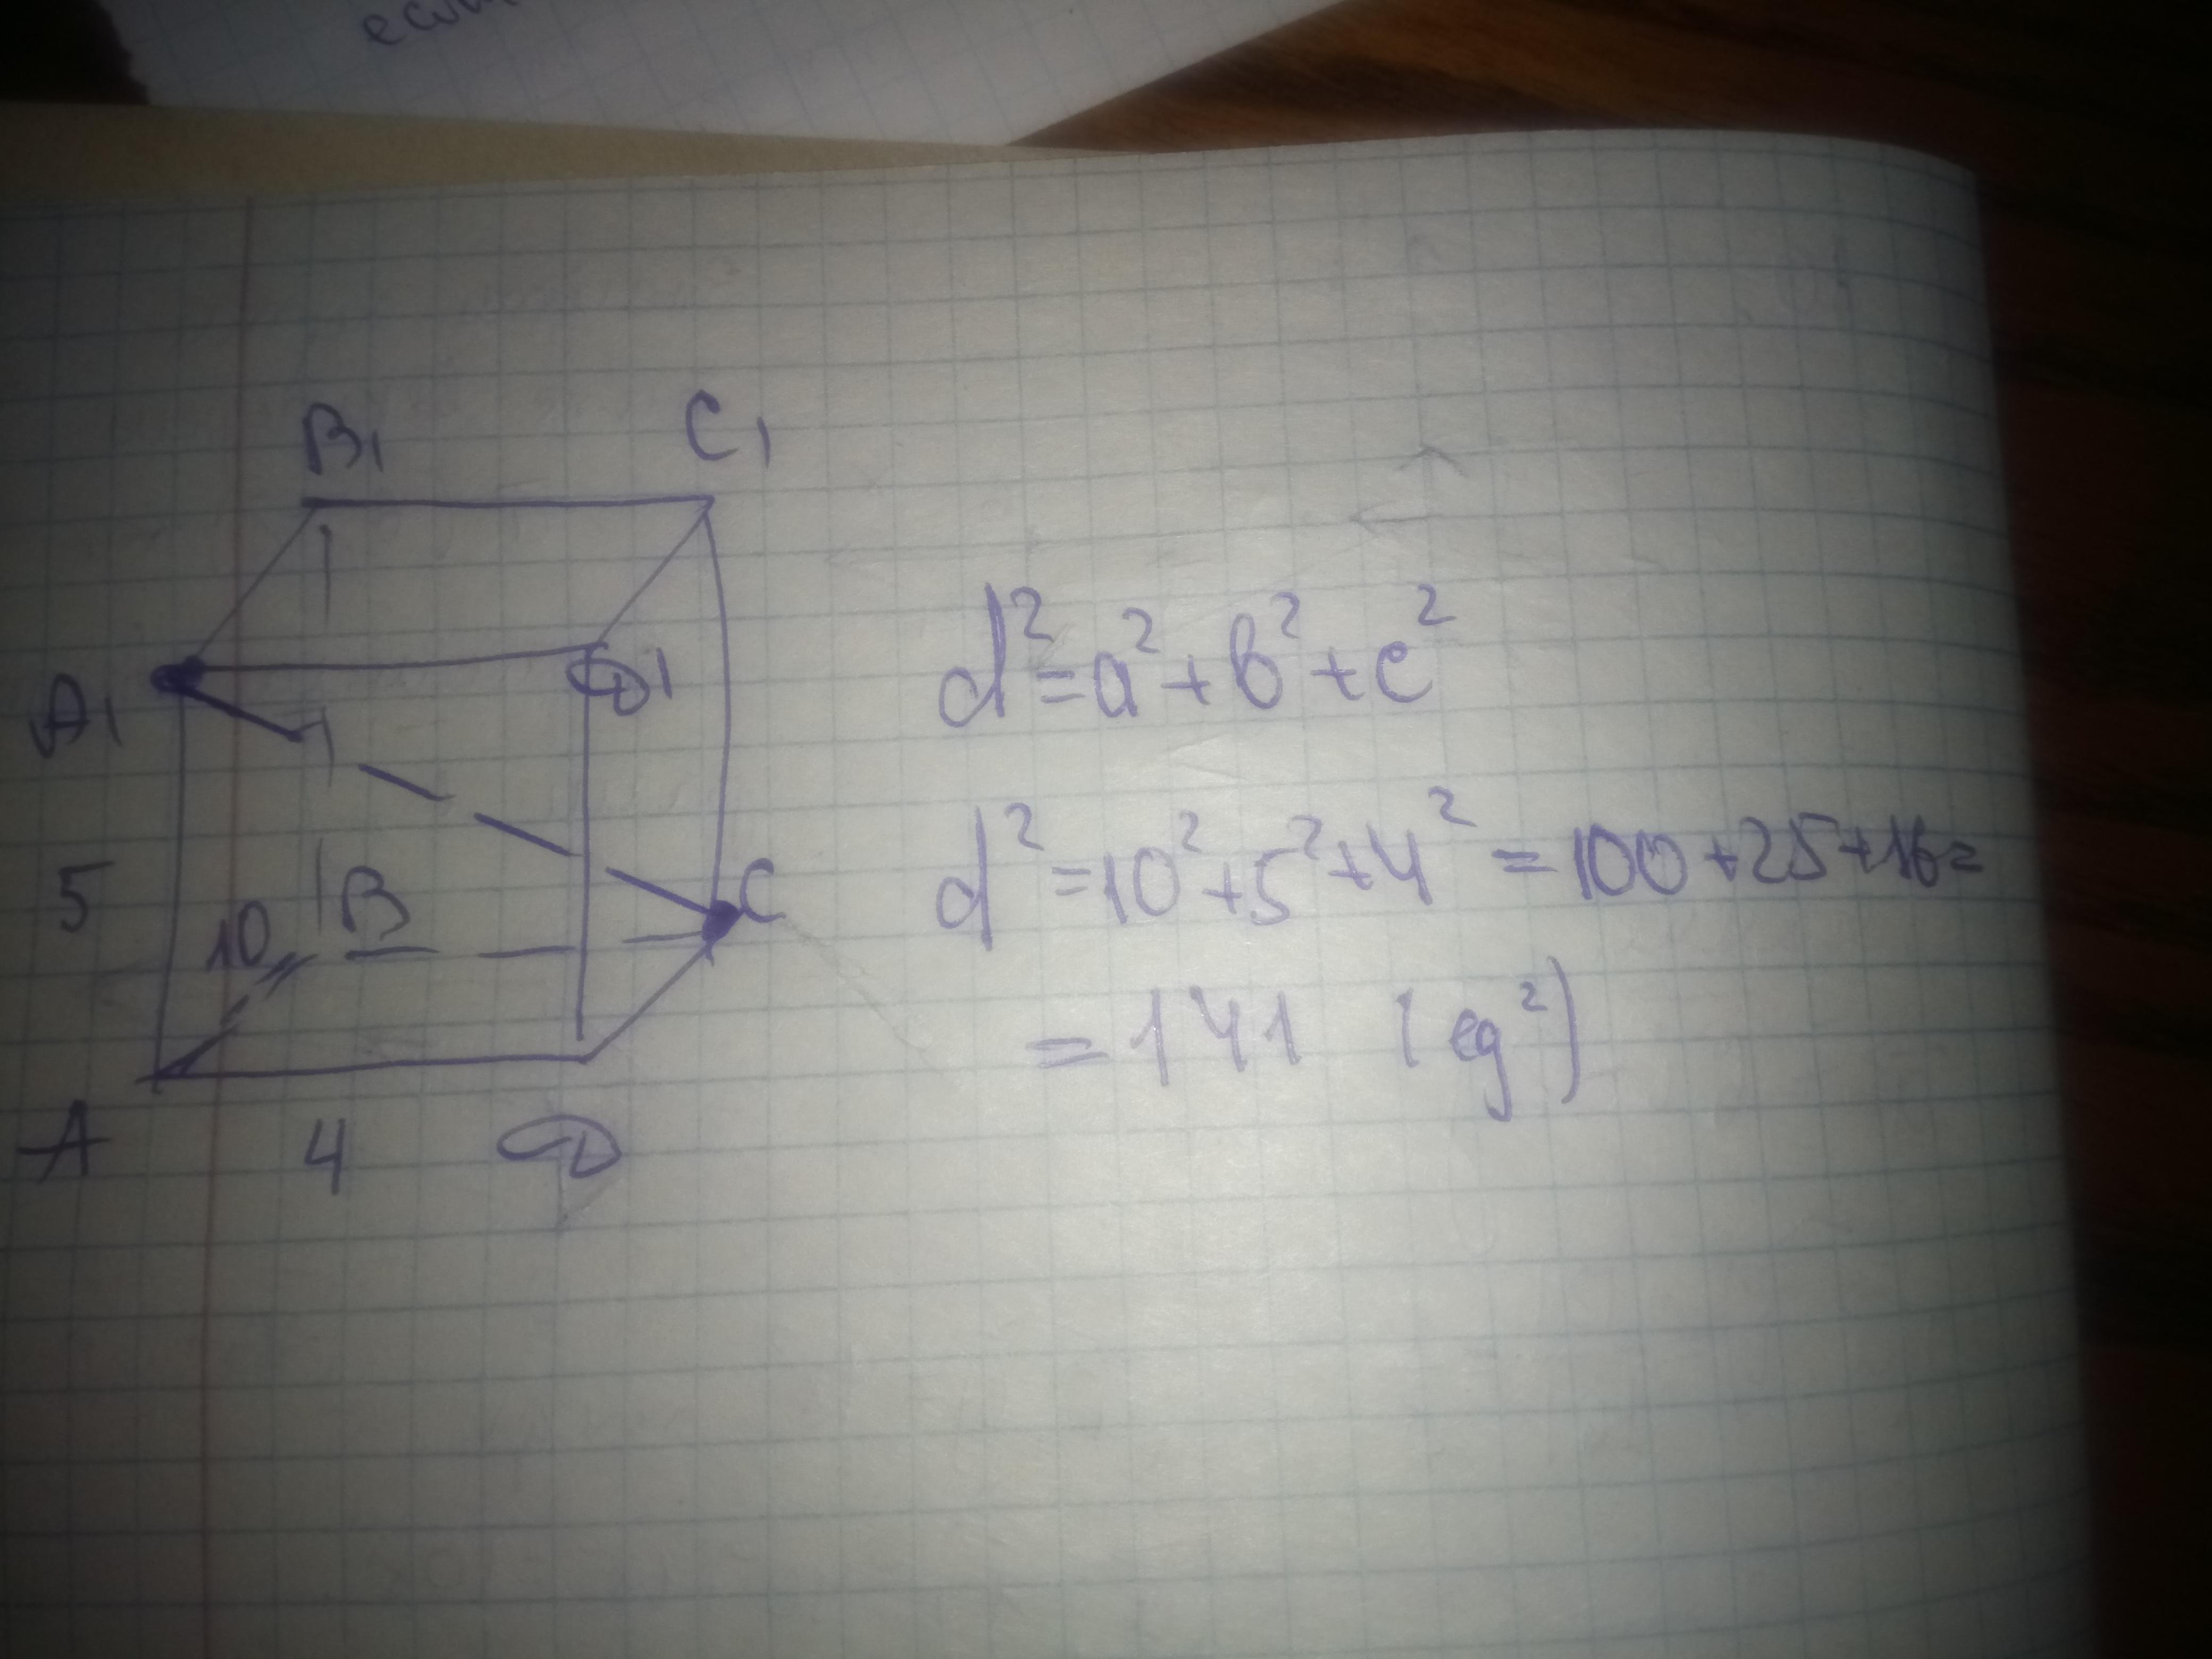 B₁ C₁
A₁ D₁
5 10 B C
A 4 D
d²=a²+b²+c²
d²=10²+5²+4²=100+25+16=
=141 (eg²)